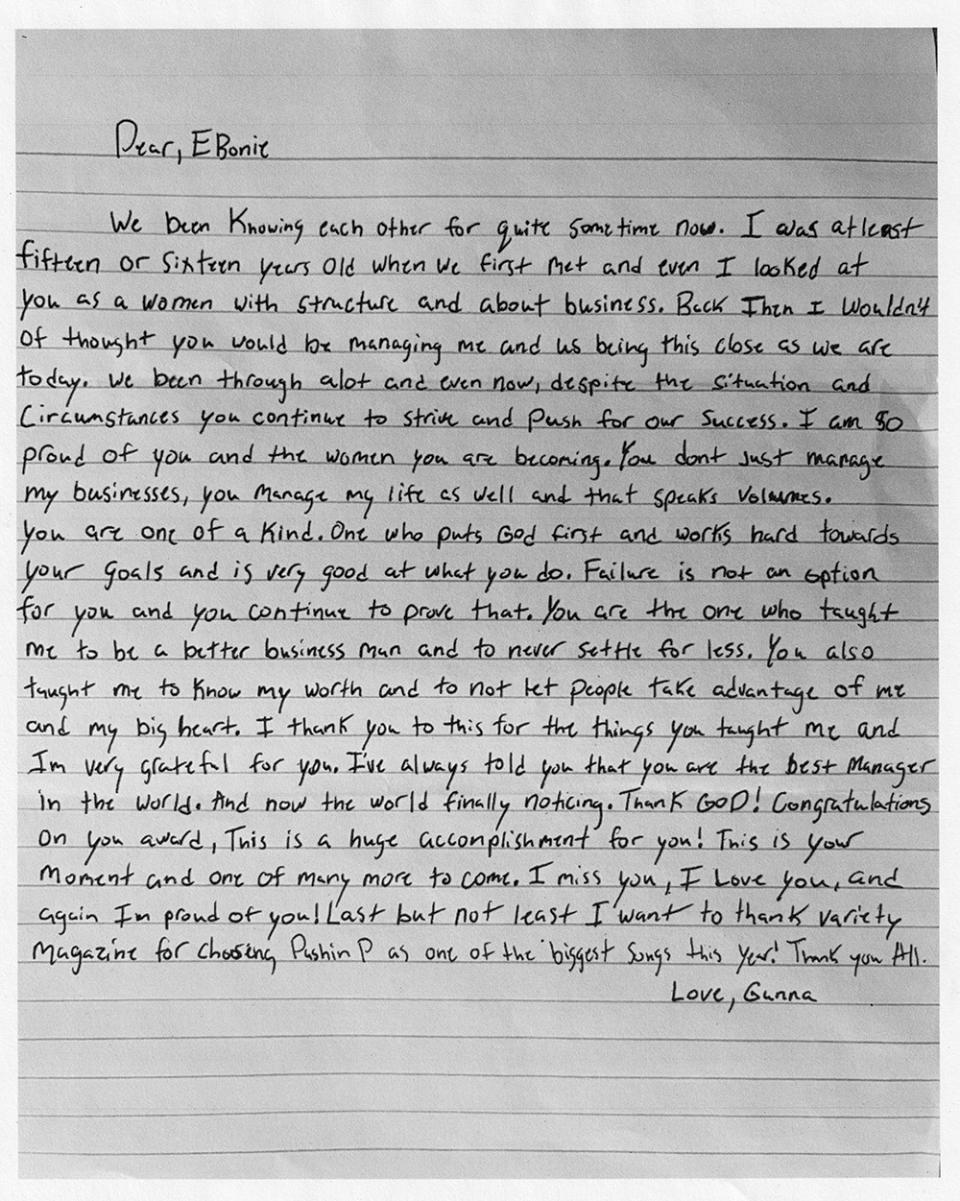 Dear, EBonie
We been Knowing each other for quite sometime now. I was atleast
fifteen or Sixteen years Old when we first met and even I looked at
you as a women with structure and about business. Back Then I Wouldn't
Of thought you would be managing me and us being this close as we are
today. We been through alot and even now, despite the situation and
Circumstances you continue to strive and Push for our Success. I am so
proud of you and the women you are becoming. You dont Just manage
my businesses, you manage my life as well and that speaks Volumes.
you are one of a Kind. One who puts God first and works hard towards
your Goals and is very good at what you do. Failure is not an option
for you and you continue to prove that. You are the one who taught
me to be a better business man and to never settle for less. You also
taught me to Know my worth and to not let people take advantage of me
and my big heart. I thank you to this for the things you taught me and
Im very grateful for you. I've always told you that you are the best Manager
in the World. And now the world finally noticing. Thank GOD! Congratulations
On you award, This is a huge accomplishment for you! This is your
Moment and one of many more to come. I miss you, I Love you, and
again Im proud of you! Last but not least I want to thank variety
Magazine for choosing Pushin P as one of the biggest Songs this Year! Thank you All.
Love, Gunna